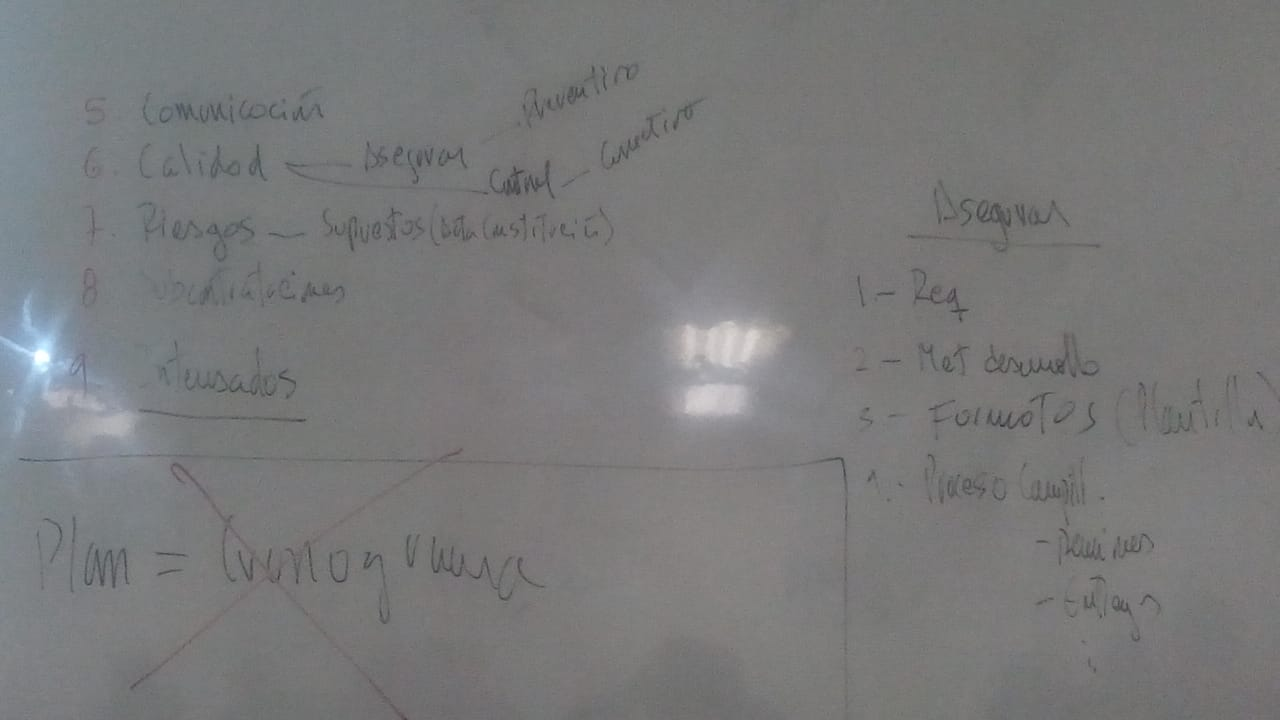 5. Comunicación
6. Calidad — Asegurar - Preventivo
Control - Correctivo
7. Riesgos — Supuestos (
8
9 Interesados
Plan = Cronograma
Asegurar
1 - Req
2 - Met desarrollo
3 - Formatos (Plantilla)
Proceso
- Reuniones
- Entregas